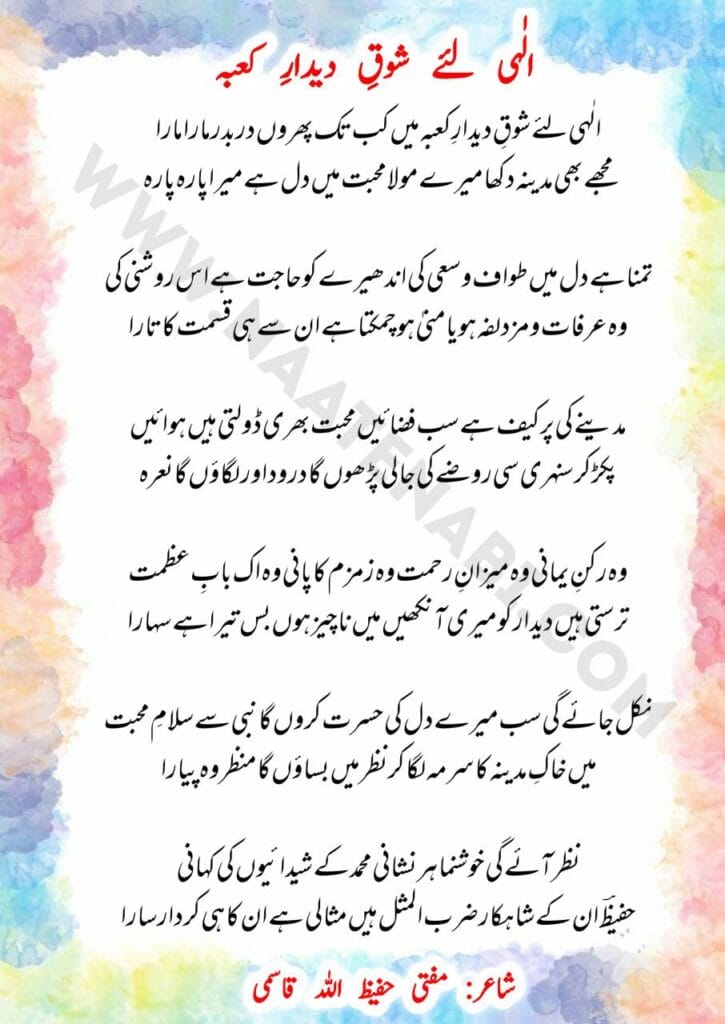 الٰہی لئے شوقِ دیدارِ کعبہ
الٰہی لئے شوقِ دیدارِ کعبہ میں کب تک پھروں در بدر مارا مارا
مجھے بھی مدینہ دکھا میرے مولا محبت میں دل ہے میرا پارہ پارہ
تمنا ہے دل میں طواف و سعی کی اندھیرے کو حاجت ہے اس روشنی کی
وہ عرفات و مزدلفہ ہو یا منیٰ ہو چمکتا ہے ان سے ہی قسمت کا تارا
مدینے کی پر کیف ہے سب فضائیں محبت بھری ڈولتی ہیں ہوائیں
پکڑ کر سنہری سی روضے کی جالی پڑھوں گا درود اور لگاؤں گا نعرہ
وہ رکنِ یمانی وہ میزانِ رحمت وہ زمزم کا پانی وہ اک بابِ عظمت
ترستی ہیں دیدار کو میری آنکھیں میں ناچیز ہوں بس تیرا ہے سہارا
نکل جائے گی سب میرے دل کی حسرت کروں گا نبی سے سلامِ محبت
میں خاکِ مدینہ کا سرمہ لگا کر نظر میں بساؤں گا منظر وہ پیارا
نظر آئے گی خوشنما ہر نشانی محمد کے شیدائیوں کی کہانی
حفیظؔ ان کے شاہکار ضرب المثل ہیں مثالی ہے ان کا ہی کردار سارا
شاعر: مفتی حفیظ اللہ قاسمی
WWW.NAATENABI.COM